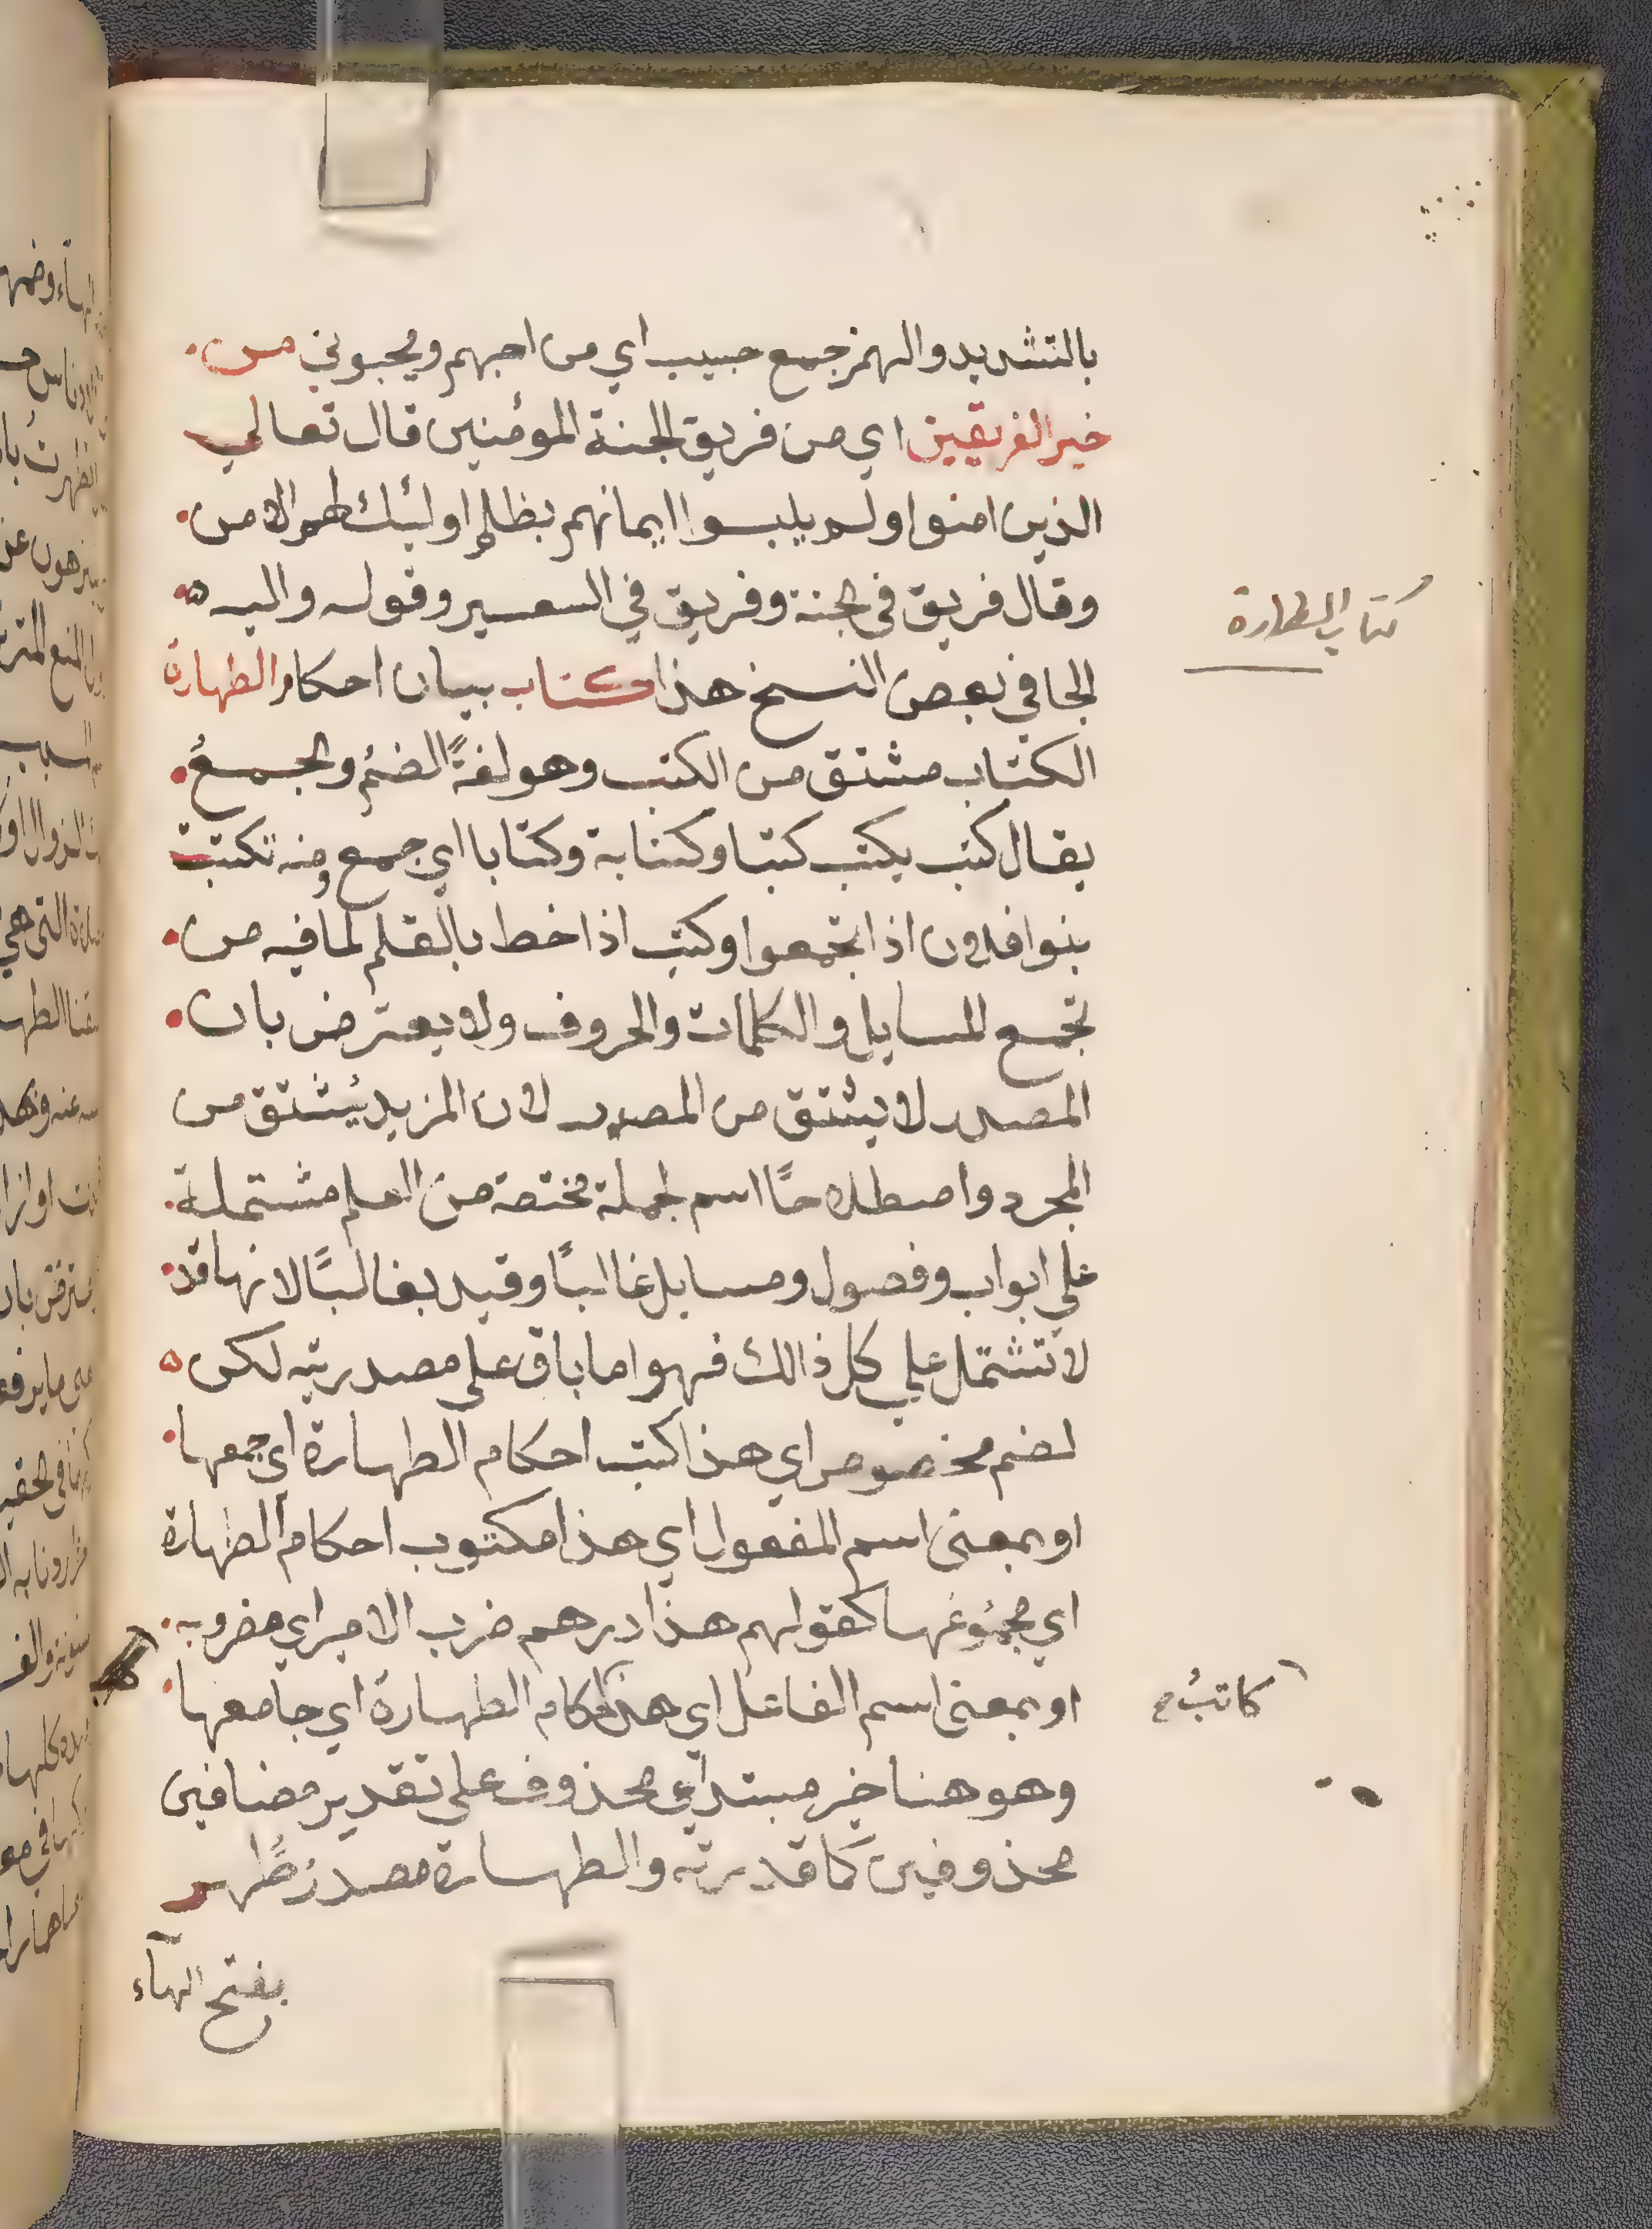 بالتشديد والهمز جمع حبيب اي من احبهم ويحبوني من
خير الفريقين اي من فريق الجنة المؤمنين قال تعالي
الذين امنوا ولم يلبسوا ايمانهم بظلم اولئك لهم الامن
وقال فريق في الجنة وفريق في السعير وقوله واليه
الجا في بعض النسخ هذا كتاب بيان احكام الطهارة
كتاب الطهارة
الكتاب مشتق من الكتب وهو لغةً الضمُ والجمعُ
يقال كتب يكتب كتبا وكتابة وكتابا اي جمع ومنه تكتبت
بنوا فلان اذا اجتمعوا وكتب اذا خط بالقلم لما فيه من
تجمع المسايل والكلمات والحروف ولا يعترض بان
المصدر لا يشتق من المصدر لان المزيد يُشتق من
المجرد واصطلاحًا اسم لجملة مختصة من العلم مشتملة
علي ابواب وفصول ومسايل غالبًا وقيد بغالبًا لانها قد
لا تشتمل علي كل ذالك فهو اما باق علي مصدريته لكن
لضم مخصوص اي هذا كتب احكام الطهارة اي جمعها
او بمعنى اسم المفعول اي هذا مكتوب احكام الطهارة
اي مجمُوعُها كقولهم هذا درهم ضرب الامير اي مضروبه
او بمعنى اسم الفاعل اي هذا احكام الطهارة اي جامعها
كاتبُ
وهو هنا خبر مبتدإي محذوف علي تقدير مضافين
محذوفين كما قدرته والطهارة مصدرُ طَهر
بفتح الهآء